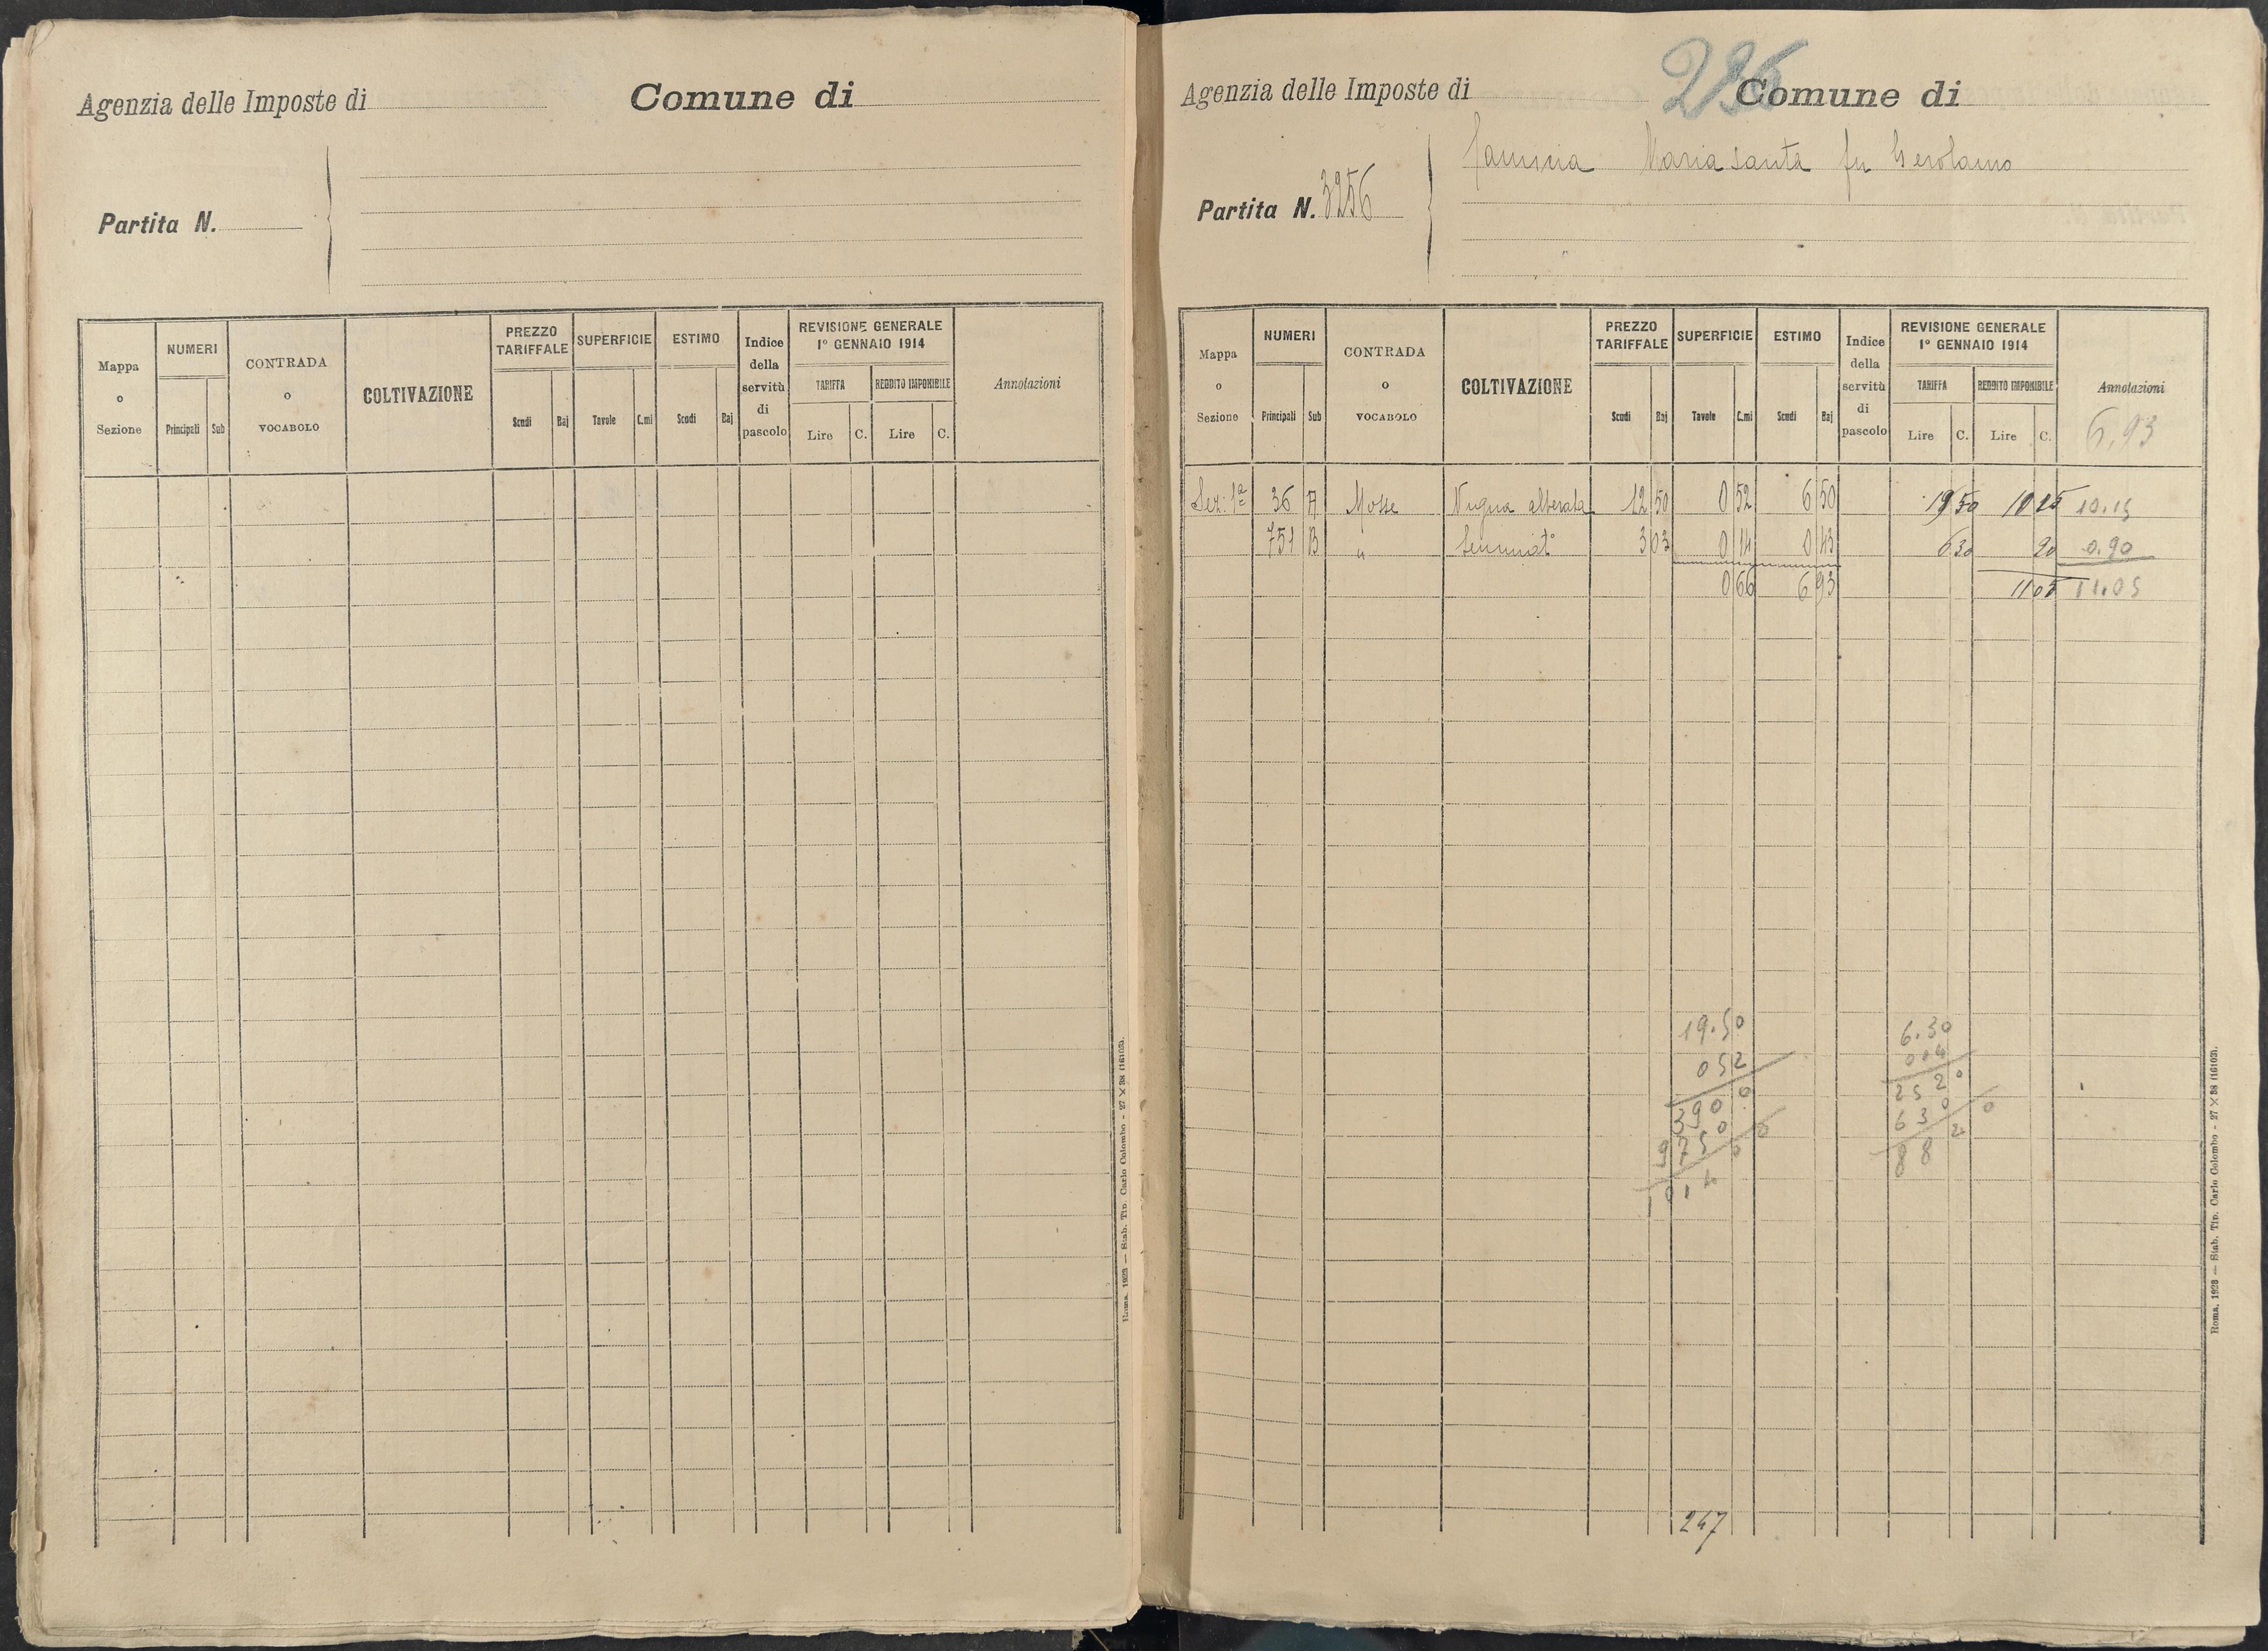 Agenzia delle Imposte di Comune di
Partita N.
Mappa o Sezione
NUMERI
Principali Sub
CONTRADA o VOCABOLO
COLTIVAZIONE
PREZZO TARIFFALE
Scudi Baj
SUPERFICIE
Tavole C.mi
ESTIMO
Scudi Baj
Indice della servitù di pascolo
REVISIONE GENERALE
1° GENNAIO 1914
TARIFFA REDDITO IMPONIBILE
Lire C. Lire C.
Annotazioni
Roma, 1923 — Stab. Tip. Carlo Colombo - 27 × 38 (16103).
Agenzia delle Imposte di Comune di
236
Maria Santa fu Gerolamo
Partita N. 3256
Mappa o Sezione
NUMERI
Principali Sub
CONTRADA o VOCABOLO
COLTIVAZIONE
PREZZO TARIFFALE
Scudi Baj
SUPERFICIE
Tavole C.mi
ESTIMO
Scudi Baj
Indice della servitù di pascolo
REVISIONE GENERALE
1° GENNAIO 1914
TARIFFA REDDITO IMPONIBILE
Lire C. Lire C.
Annotazioni
6,93
Sez: 1ª 36 A Mosse Vigna alberata 12 50 0 52 6 50 19 50 10 15 10.15
751 B " Seminat° 3 03 0 14 0 43 6 30 90 0.90
0 66 6 93 11 05 11.05
19.50
052
3900
9750
6.30
014
2520
630
8820
247
Roma, 1923 — Stab. Tip. Carlo Colombo - 27 × 38 (16103).